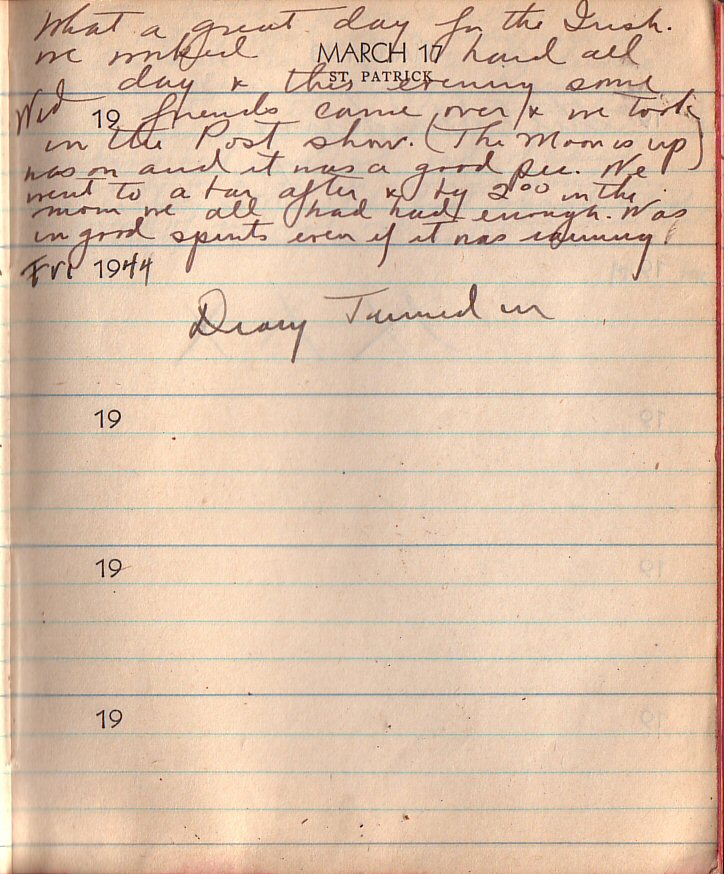 What a great day for the Irish.
we worked MARCH 17 hard all
ST. PATRICK
day & this evening some
Wed 19 friends came over & we took
in the Post show. (The Moon is up)
was on and it was a good pic. We
went to a bar after & by 2⁰⁰ in the
morn we all had had enough. Was
in good spirits even if it was raining!
Fri 1944
Diary Turned in
19
19
19